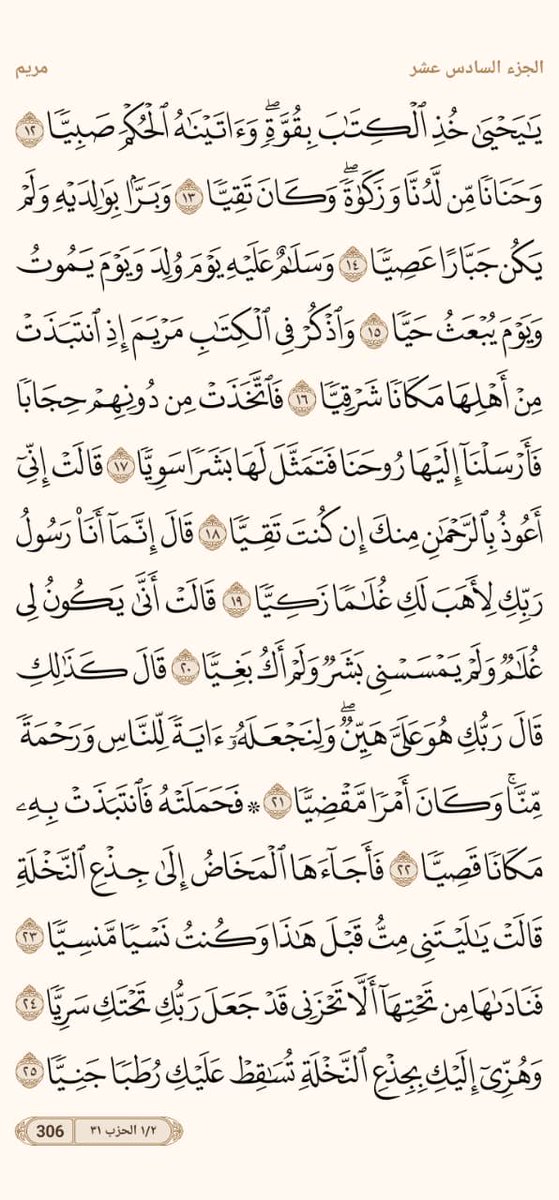 الجزء السادس عشر
مريم
يَٰيَحۡيَىٰ خُذِ ٱلۡكِتَٰبَ بِقُوَّةٖۖ وَءَاتَيۡنَٰهُ ٱلۡحُكۡمَ صَبِيّٗا ١٢
وَحَنَانٗا مِّن لَّدُنَّا وَزَكَوٰةٗۖ وَكَانَ تَقِيّٗا ١٣ وَبَرَّۢا بِوَٰلِدَيۡهِ وَلَمۡ
يَكُن جَبَّارًا عَصِيّٗا ١٤ وَسَلَٰمٌ عَلَيۡهِ يَوۡمَ وُلِدَ وَيَوۡمَ يَمُوتُ
وَيَوۡمَ يُبۡعَثُ حَيّٗا ١٥ وَٱذۡكُرۡ فِي ٱلۡكِتَٰبِ مَرۡيَمَ إِذِ ٱنتَبَذَتۡ
مِنۡ أَهۡلِهَا مَكَانٗا شَرۡقِيّٗا ١٦ فَٱتَّخَذَتۡ مِن دُونِهِمۡ حِجَابٗا
فَأَرۡسَلۡنَآ إِلَيۡهَا رُوحَنَا فَتَمَثَّلَ لَهَا بَشَرٗا سَوِيّٗا ١٧ قَالَتۡ إِنِّيٓ
أَعُوذُ بِٱلرَّحۡمَٰنِ مِنكَ إِن كُنتَ تَقِيّٗا ١٨ قَالَ إِنَّمَآ أَنَا۠ رَسُولُ
رَبِّكِ لِأَهَبَ لَكِ غُلَٰمٗا زَكِيّٗا ١٩ قَالَتۡ أَنَّىٰ يَكُونُ لِي
غُلَٰمٞ وَلَمۡ يَمۡسَسۡنِي بَشَرٞ وَلَمۡ أَكُ بَغِيّٗا ٢٠ قَالَ كَذَٰلِكِ
قَالَ رَبُّكِ هُوَ عَلَيَّ هَيِّنٞۖ وَلِنَجۡعَلَهُۥٓ ءَايَةٗ لِّلنَّاسِ وَرَحۡمَةٗ
مِّنَّاۚ وَكَانَ أَمۡرٗا مَّقۡضِيّٗا ٢١ ۞ فَحَمَلَتۡهُ فَٱنتَبَذَتۡ بِهِۦ
مَكَانٗا قَصِيّٗا ٢٢ فَأَجَآءَهَا ٱلۡمَخَاضُ إِلَىٰ جِذۡعِ ٱلنَّخۡلَةِ
قَالَتۡ يَٰلَيۡتَنِي مِتُّ قَبۡلَ هَٰذَا وَكُنتُ نَسۡيٗا مَّنسِيّٗا ٢٣
فَنَادَىٰهَا مِن تَحۡتِهَآ أَلَّا تَحۡزَنِي قَدۡ جَعَلَ رَبُّكِ تَحۡتَكِ سَرِيّٗا ٢٤
وَهُزِّيٓ إِلَيۡكِ بِجِذۡعِ ٱلنَّخۡلَةِ تُسَٰقِطۡ عَلَيۡكِ رُطَبٗا جَنِيّٗا ٢٥
١/٢ الحزب ٣١
306